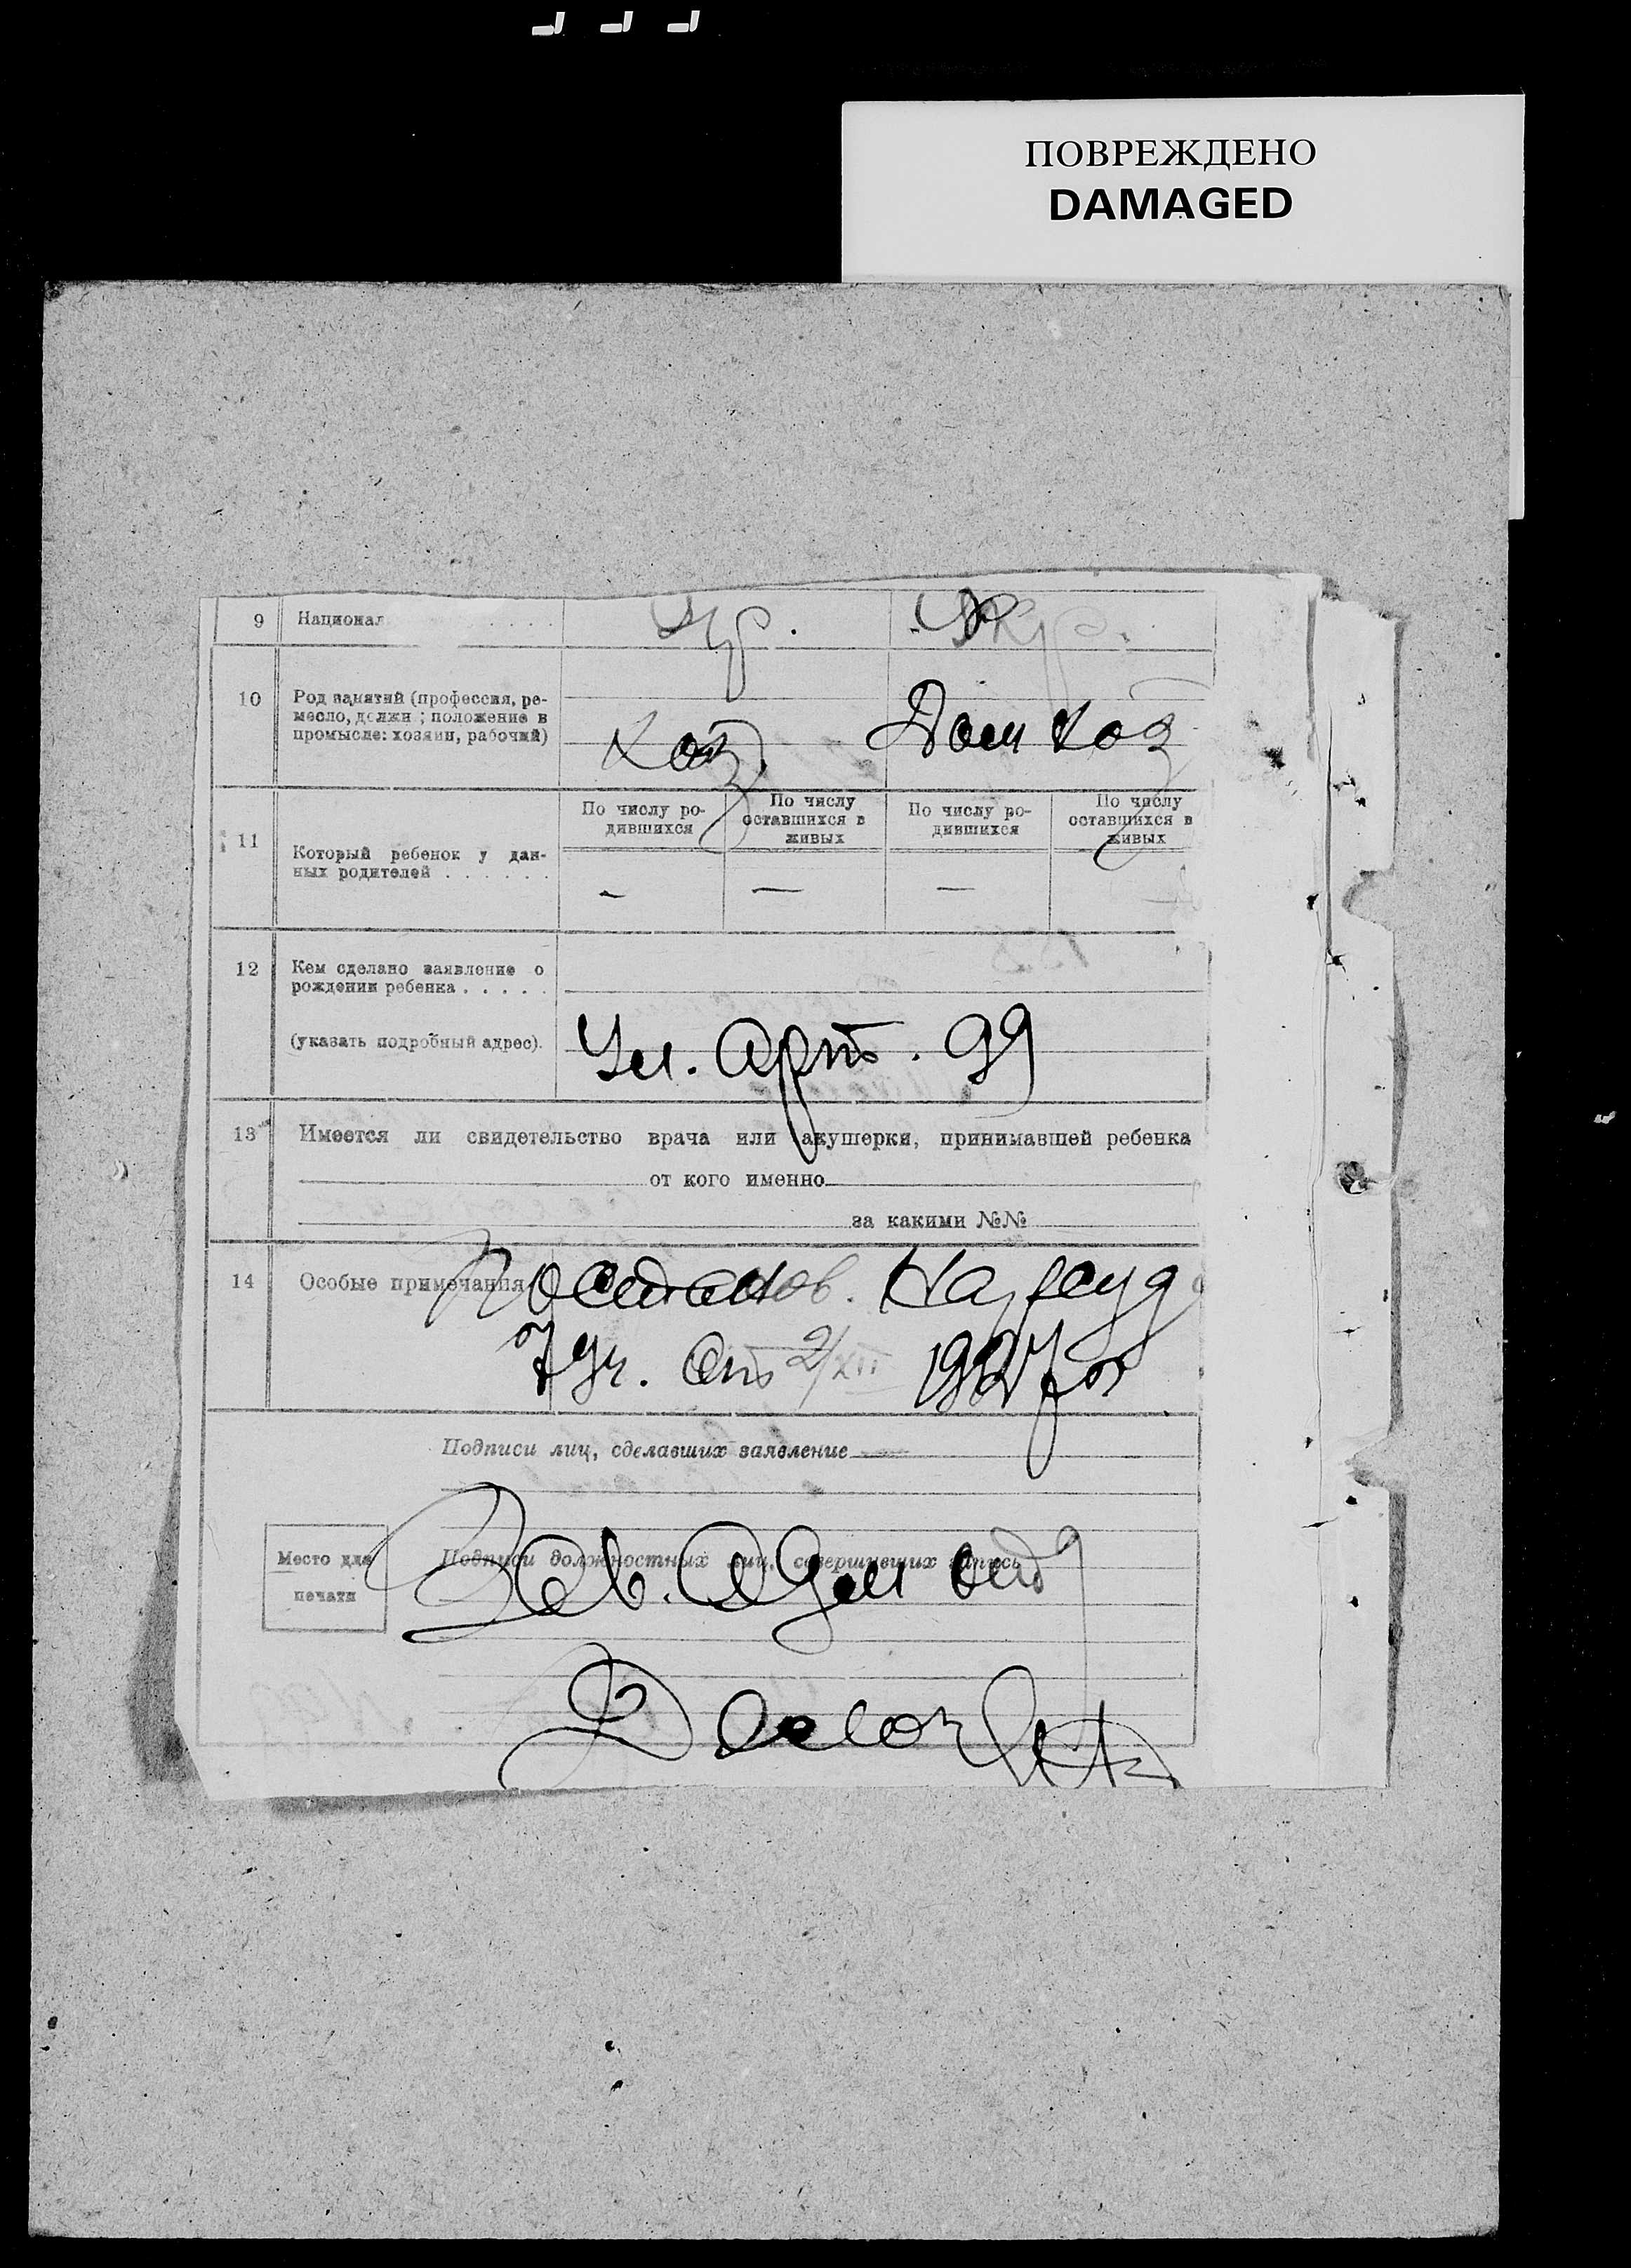 ПОВРЕЖДЕНО
DAMAGED
9 Национал . . . .
Укр.
10 Род занятий (профессия, ре-
месло, должн ; положение в
промысле: хозяин, рабочий)
Хоз. Дом хоз
11 Который ребенок у дан-
ных родителей . . . . . .
По числу ро-
дившихся
По числу
оставшихся в
живых
По числу ро-
дившихся
По числу
оставшихся в
живых
— — —
12 Кем сделано заявление о
рождении ребенка . . . . .
(указать подробный адрес).
Ул. Арт. 99
13 Имеется ли свидетельство врача или акушерки, принимавшей ребенка
от кого именно
за какими №№
14 Особые примечания
Постанов. Нарсуд
7 уч. от 2/XII 1927
Подписи лиц, сделавших заявление
Место для
печати
Подписи должностных лиц, совершивших запись
Зав. Адм отд